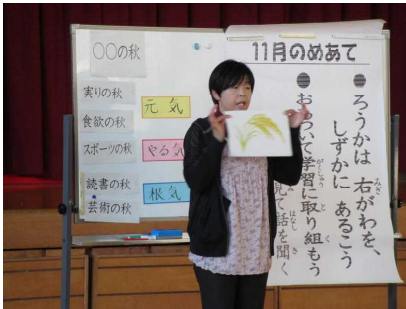 〇〇の秋
実りの秋
食欲の秋
スポーツの秋
読書の秋
芸術の秋
元気
やる気
根気
11月のめあて
●ろうかは 右がわを、
しずかに あるこう
●おちついて学習に取り組もう
見て話を聞く